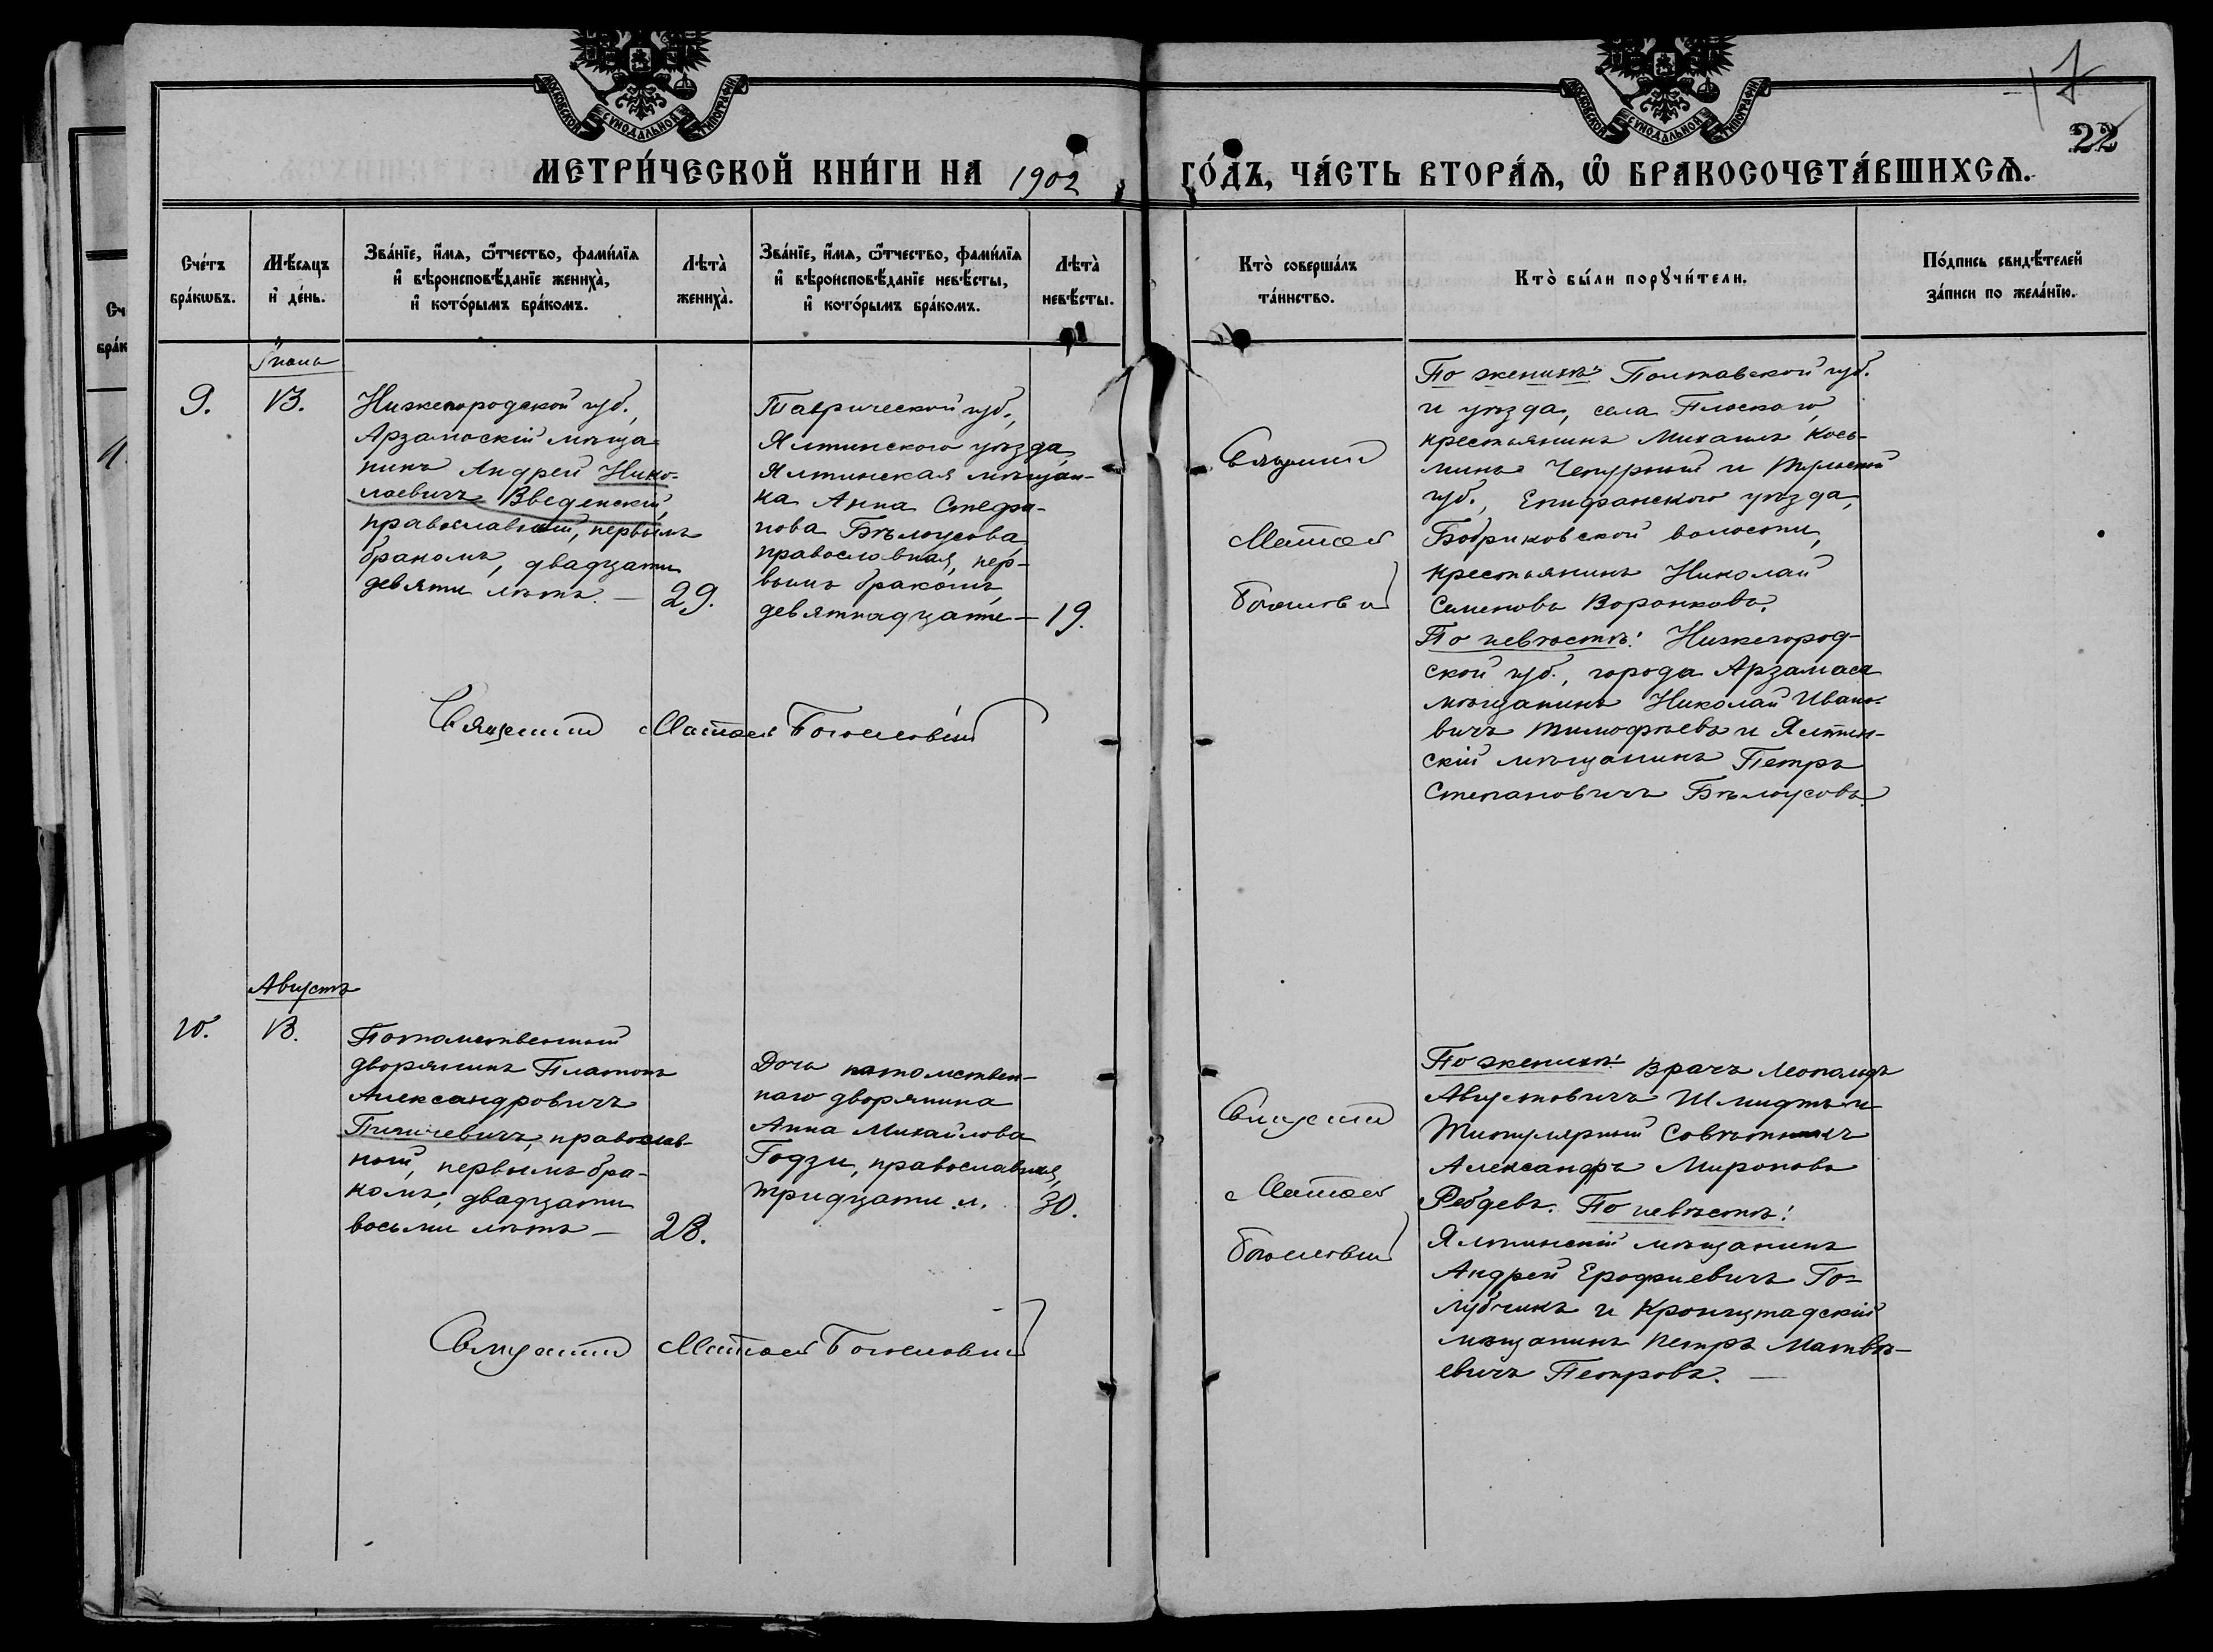 МОСКОВСКОЙ СѴНОДАЛЬНОЙ ТИПОГРАФІИ
МОСКОВСКОЙ СѴНОДАЛЬНОЙ ТИПОГРАФІИ
22
МЕТРИ́ЧЕСКОЙ КНИ́ГИ НА 1902 ГО́ДЪ, ЧА́СТЬ ВТОРА́Ѧ, Ѡ҆ БРАКОСОЧЕТА́ВШИХСѦ.
Сче́тъ бра́кѡвъ.
Мѣ́сѧцъ и҆ де́нь.
Зва́нїе, и҆́мѧ, ѻ҆́тчество, фами́лїѧ и҆ вѣроисповѣ́данїе жениха̀, и҆ кото́рымъ бра́комъ.
Лѣта̀ жениха̀.
Зва́нїе, и҆́мѧ, ѻ҆́тчество, фами́лїѧ и҆ вѣроисповѣ́данїе невѣ́сты, и҆ кото́рымъ бра́комъ.
Лѣта̀ невѣ́сты.
Кто̀ соверша́лъ та́инство.
Кто̀ бы́ли порꙋчи́тели.
По́дпись свидѣ́телей за́писи по жела́нїю.
9.
Нижегородской губ.,
Арзамаскій мѣща-
нинъ Андрей Нико-
лаевичъ Введенскій,
православный, первымъ
бракомъ, двадцати
девяти лѣтъ. — 29.
Таврической губ.,
Ялтинского уѣзда,
Ялтинская мѣщан-
ка Анна Стефа-
нова Бѣлоусова
православная, пер-
вымъ бракомъ,
девятнадцати — 19.
Священникъ
Матѳей
Богословскій
По женихѣ: Полтавской губ.
и уѣзда, села Плоского,
крестьянинъ Михаилъ Кось-
минъ Чепурный и Тульской
губ., Епифанского уѣзда,
Бобриковской волости,
крестьянинъ Николай
Семеновъ Воронковъ.
По невѣстѣ: Нижегород-
ской губ., города Арзамаса
мѣщанинъ Николай Ивано-
вичъ Тимофѣевъ и Ялтин-
скій мѣщанинъ Петръ
Степановичъ Бѣлоусовъ
Священникъ Матѳей Богословскій
Августъ
10.
Потомственный
дворянинъ Платонъ
Александровичъ
православ-
ный, первымъ бра-
комъ, двадцати
восьми лѣтъ — 28.
Дочь потомствен-
наго дворянина
Анна Михайлова
Годзи, православная,
тридцати л. 30.
Священникъ
Матѳей
Богословскій
По женихѣ: Врачъ Леопольдъ
Августовичъ Шмидтъ и
Титулярный Совѣтникъ
Александръ Мироновъ
По невѣстѣ:
Ялтинскій мѣщанинъ
Андрей Ерофиевичъ Го-
лубчикъ и Кронштадскій
мѣщанинъ Петръ Матвѣ-
евичъ Петровъ. —
Священникъ Матѳей Богословскій